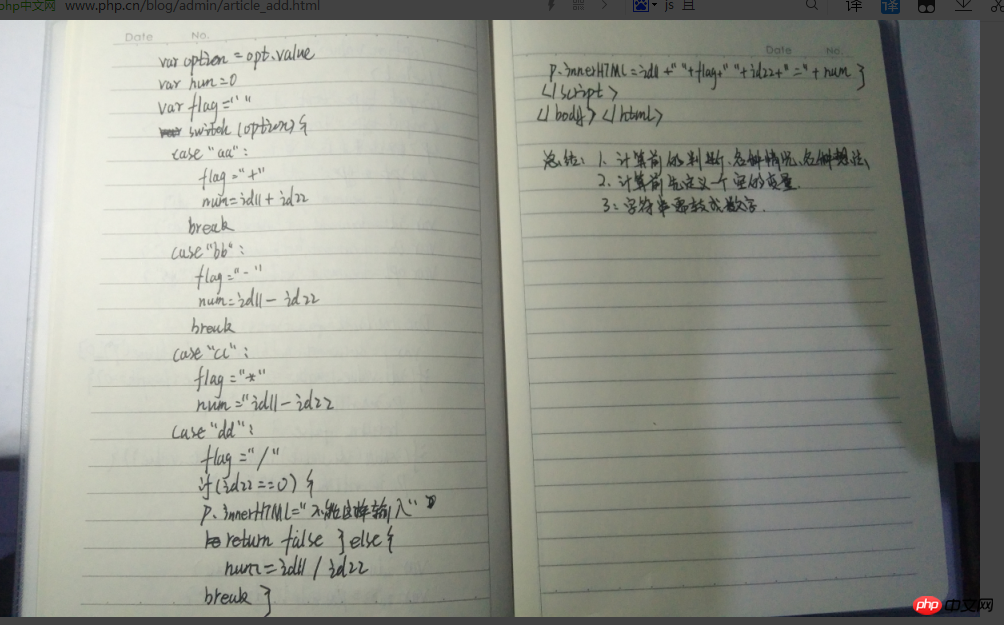 php中文网 www.php.cn/blog/admin/article_add.html
js 且
译
译
Date No.
var option = opt.value
var num=0
var flag=" "
switch (option) {
case "aa":
flag="+"
num=id11+id22
break
case "bb":
flag="-"
num=id11-id22
break
case "cc":
flag="*"
num="id11-id22
case "dd":
flag="/"
if(id22==0) {
p.innerHTML="不能这样输入"
return false } else {
num=id11/id22
break }
Date No.
p.innerHTML=id11+" "+flag+" "+id22+"="+num }
</script>
</body></html>
总结: 1. 计算前的判断、各种情况、各种想法
2. 计算前先定义一个空的变量.
3: 字符串需转成数字.
php 中文网